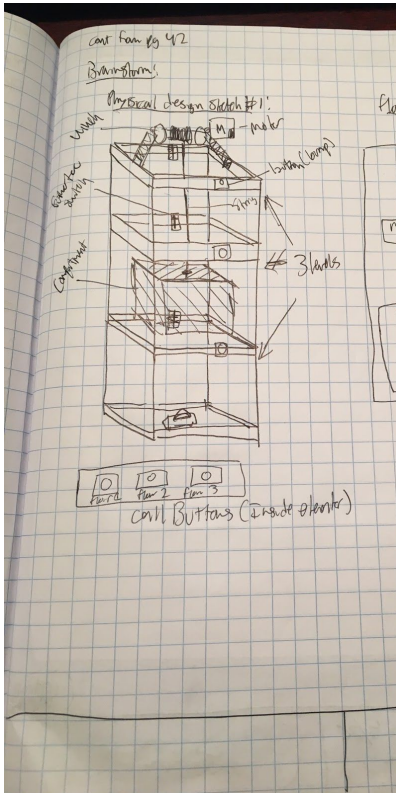 cont from pg 42
Brainstorm:
Physical design sketch #1:
Winch
M
motor
button (lamp)
switch
string
Compartment
3 levels
floor 1
floor 2
floor 3
Call Buttons (inside elevator)